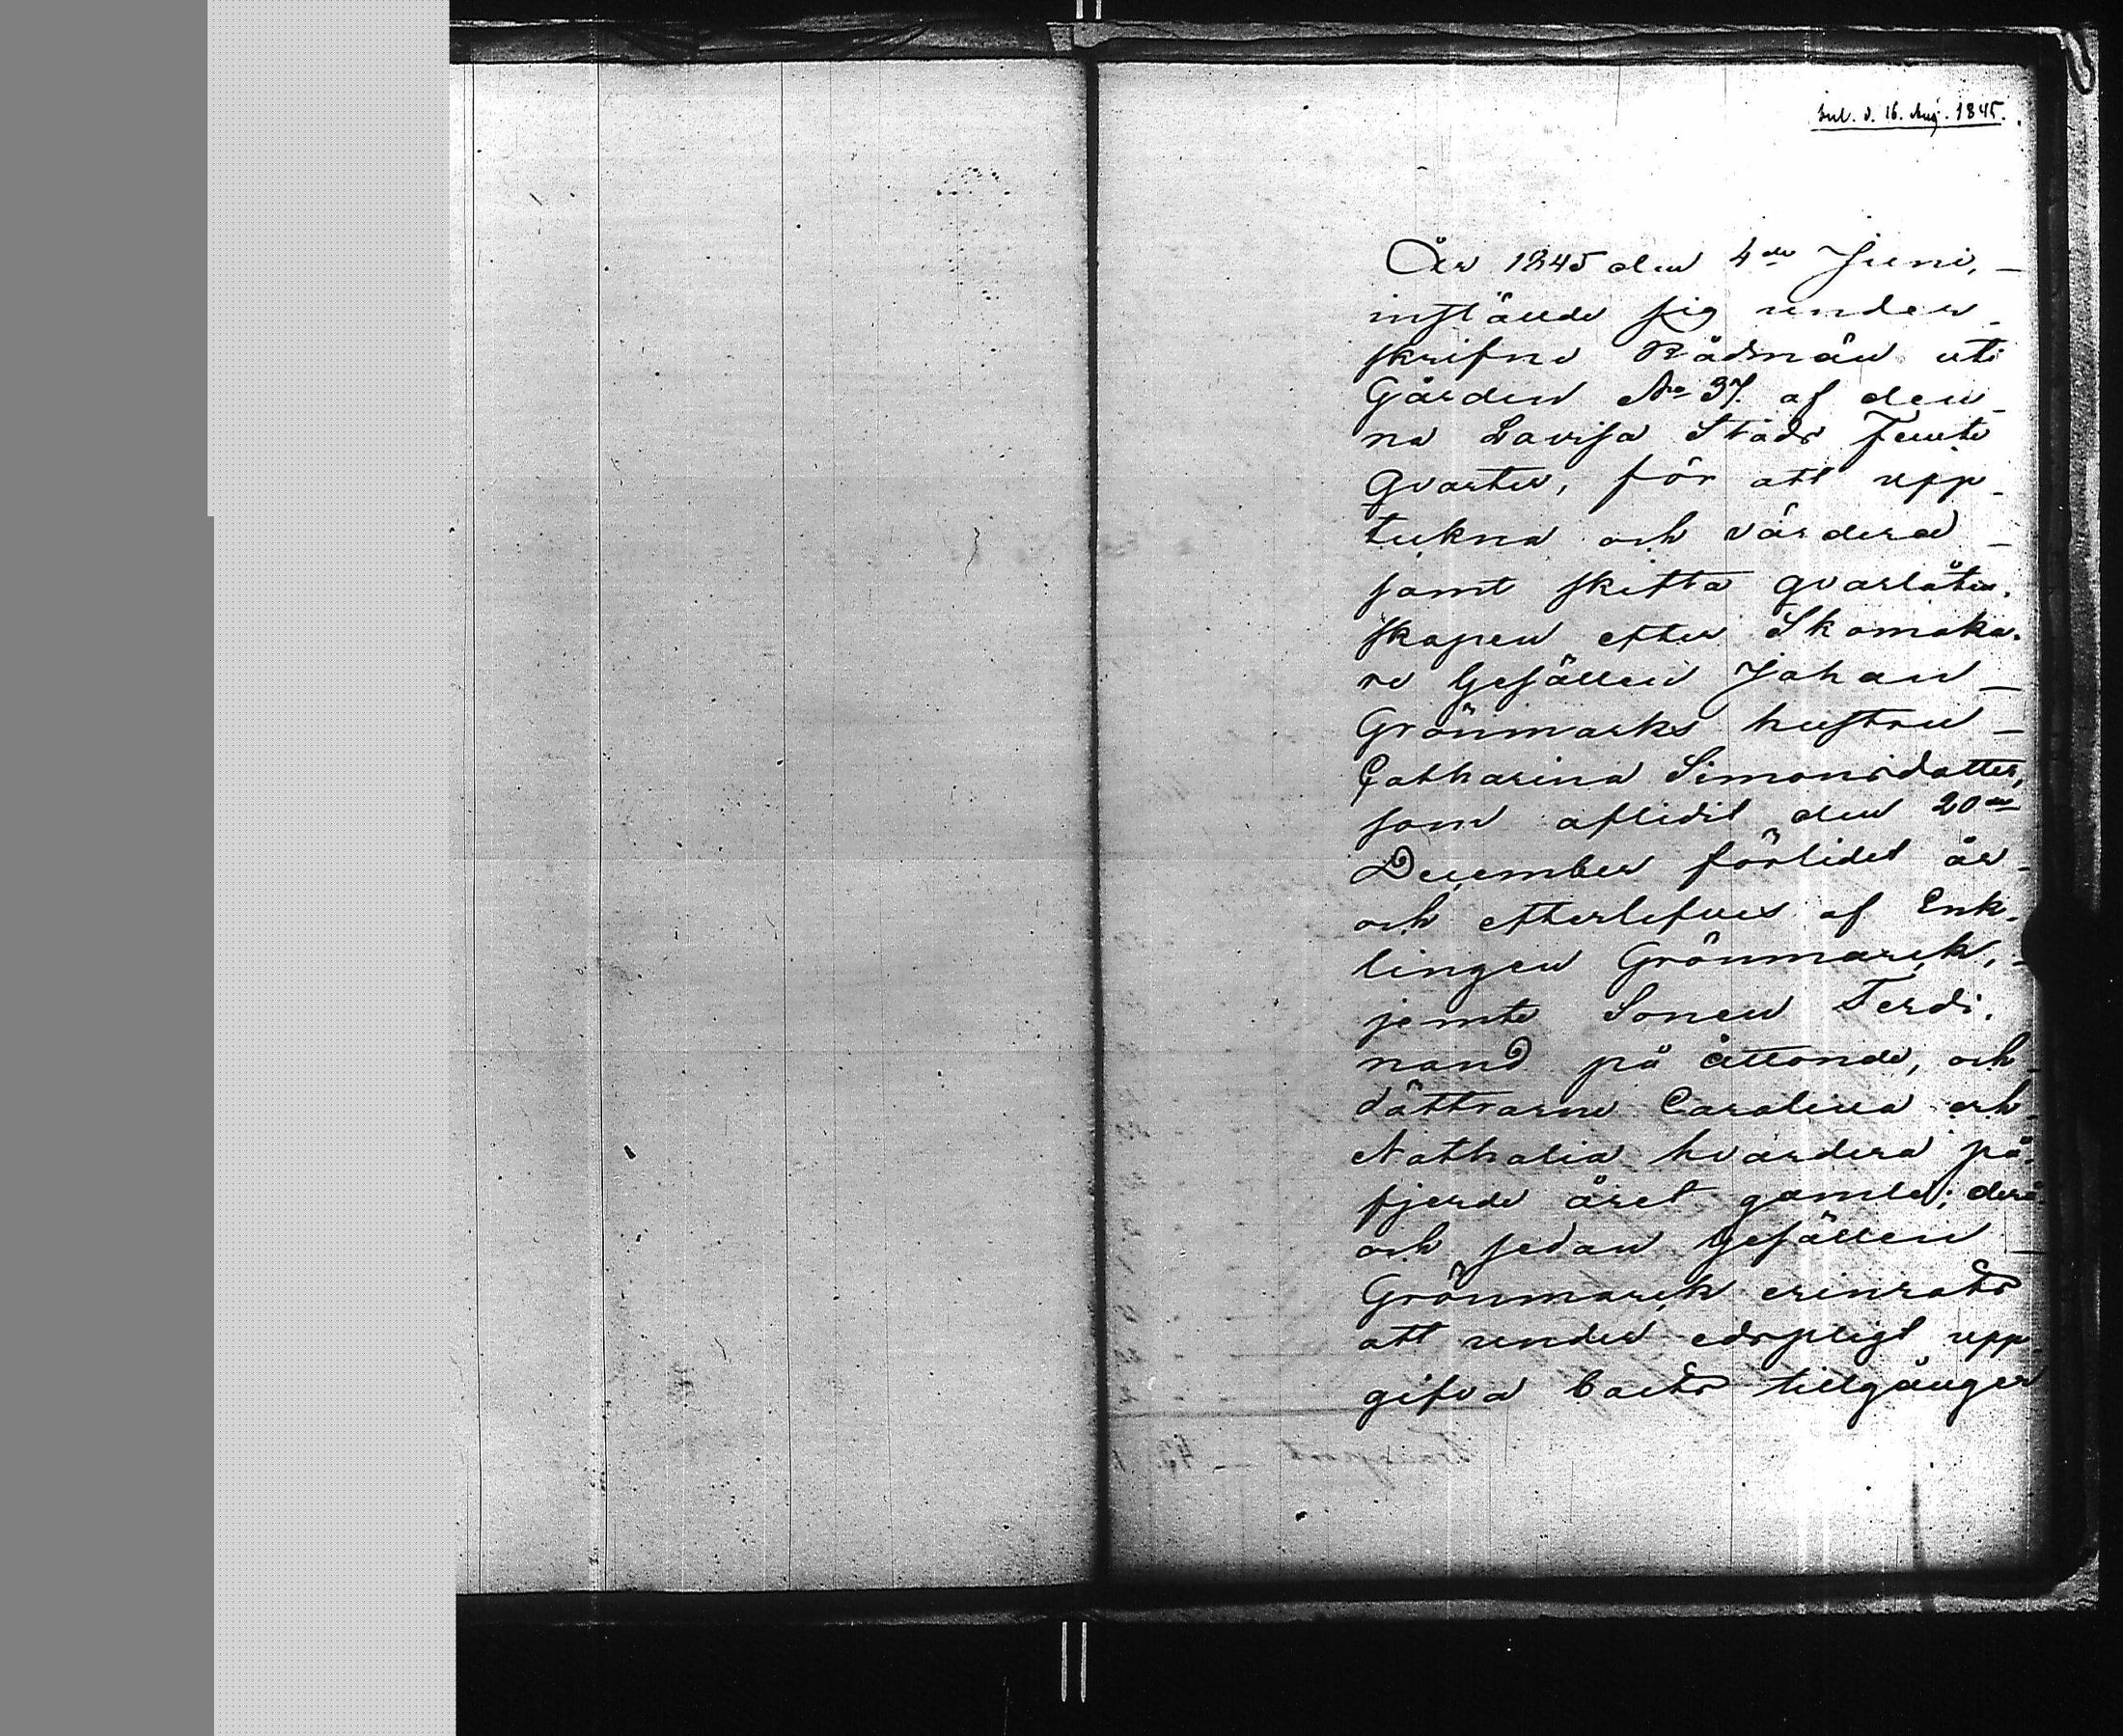 Inl. d. 16. Aug. 1845.
År 1845 den 4de Juni, –
instälde sig under-
skrifne Rådmän uti
Gården No 37. af den-
na Lovisa Stads Femte
Qvarter, för att upp-
tekna och värdera –
samt skifta qvarlåten-
skapen efter Skomaka-
re Gesällen Johan –
Grönmarks hustru –
Catharina Simonsdotter,
som aflidit den 20de
December förlidet år –
och efterlefves af Enk-
lingen Grönmarck, –
jemte Sonen Ferdi-
nand på åttonde, och –
döttrarne Carolina och –
Nathalia hvardera på
fjerde året gamle; derå
och sedan Gesällen –
Grönmarck erinrats
att under edspligt upp-
gifva boets tillgångar
Transport – 42.